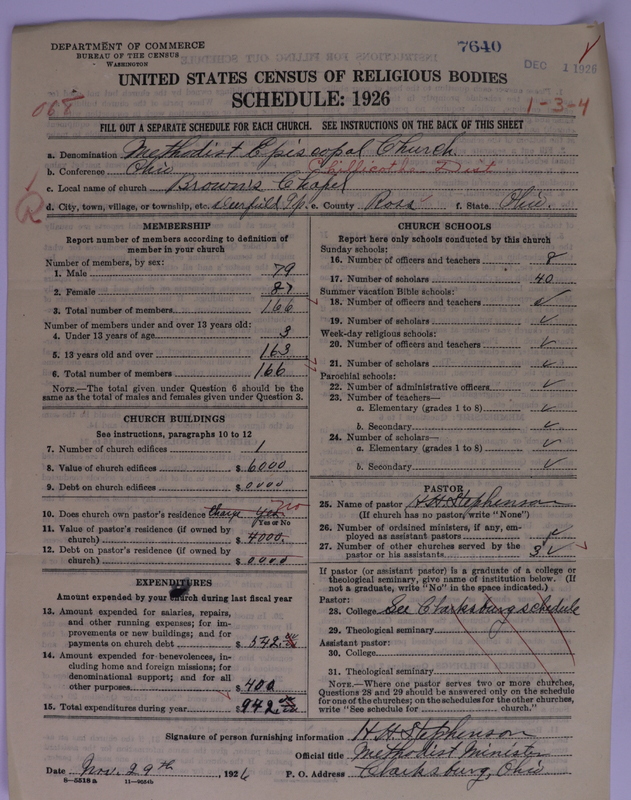 DEPARTMENT OF COMMERCE
BUREAU OF THE CENSUS
WASHINGTON
7640
DEC 1 1926
UNITED STATES CENSUS OF RELIGIOUS BODIES
SCHEDULE: 1926
068
1-3-4
FILL OUT A SEPARATE SCHEDULE FOR EACH CHURCH. SEE INSTRUCTIONS ON THE BACK OF THIS SHEET
a. Denomination Methodist Episcopal Church
b. Conference Ohio Chillicothe Dist
c. Local name of church Brown's Chapel
R
d. City, town, village, or township, etc. Deerfield Tp. e. County Ross f. State Ohio.
MEMBERSHIP
Report number of members according to definition of
member in your church
Number of members, by sex:
1. Male 79
2. Female 87
3. Total number of members 166
Number of members under and over 13 years old:
4. Under 13 years of age 3
5. 13 years old and over 163
6. Total number of members 166
NOTE.—The total given under Question 6 should be
same as the total of males and females given under Question 3.
CHURCH BUILDINGS
See instructions, paragraphs 10 to 12
7. Number of church edifices 1
8. Value of church edifices $ 6000
9. Debt on church edifices $ 0000
10. Does church own pastor's residence Yes No
(Yes or No)
11. Value of pastor's residence (if owned by
church) $ 4000.
12. Debt on pastor's residence (if owned by
church) $ 0000
EXPENDITURES
Amount expended by your church during last fiscal year
13. Amount expended for salaries, repairs,
and other running expenses; for im-
provements or new buildings; and for
payments on church debt $ 542.
14. Amount expended for benevolences, in-
cluding home and foreign missions; for
denominational support; and for all
other purposes $ 400
15. Total expenditures during year $ 942.
CHURCH SCHOOLS
Report here only schools conducted by this church
Sunday schools:
16. Number of officers and teachers 8
17. Number of scholars 40
Summer vacation Bible schools:
18. Number of officers and teachers ✓
19. Number of scholars ✓
Week-day religious schools:
20. Number of officers and teachers ✓
21. Number of scholars ✓
Parochial schools:
22. Number of administrative officers ✓
23. Number of teachers—
a. Elementary (grades 1 to 8) ✓
b. Secondary ✓
24. Number of scholars—
a. Elementary (grades 1 to 8) ✓
b. Secondary ✓
PASTOR
25. Name of pastor H. H. Stephenson
(If church has no pastor, write "None")
26. Number of ordained ministers, if any, em-
ployed as assistant pastors ✓
27. Number of other churches served by the
pastor or his assistants 3 ✓
If pastor (or assistant pastor) is a graduate of a college or
theological seminary, give name of institution below. (If
not a graduate, write "No" in the space indicated.)
Pastor:
28. College See Clarksburg schedule
29. Theological seminary
Assistant pastor:
30. College
31. Theological seminary
NOTE.—Where one pastor serves two or more churches,
Questions 28 and 29 should be answered only on the schedule
for one of the churches; on the schedules for the other churches,
write "See schedule for ________ church."
Signature of person furnishing information H. H. Stephenson
Official title Methodist Minister
Date Nov. 29th, 1926 P. O. Address Clarksburg, Ohio
8—5518 a